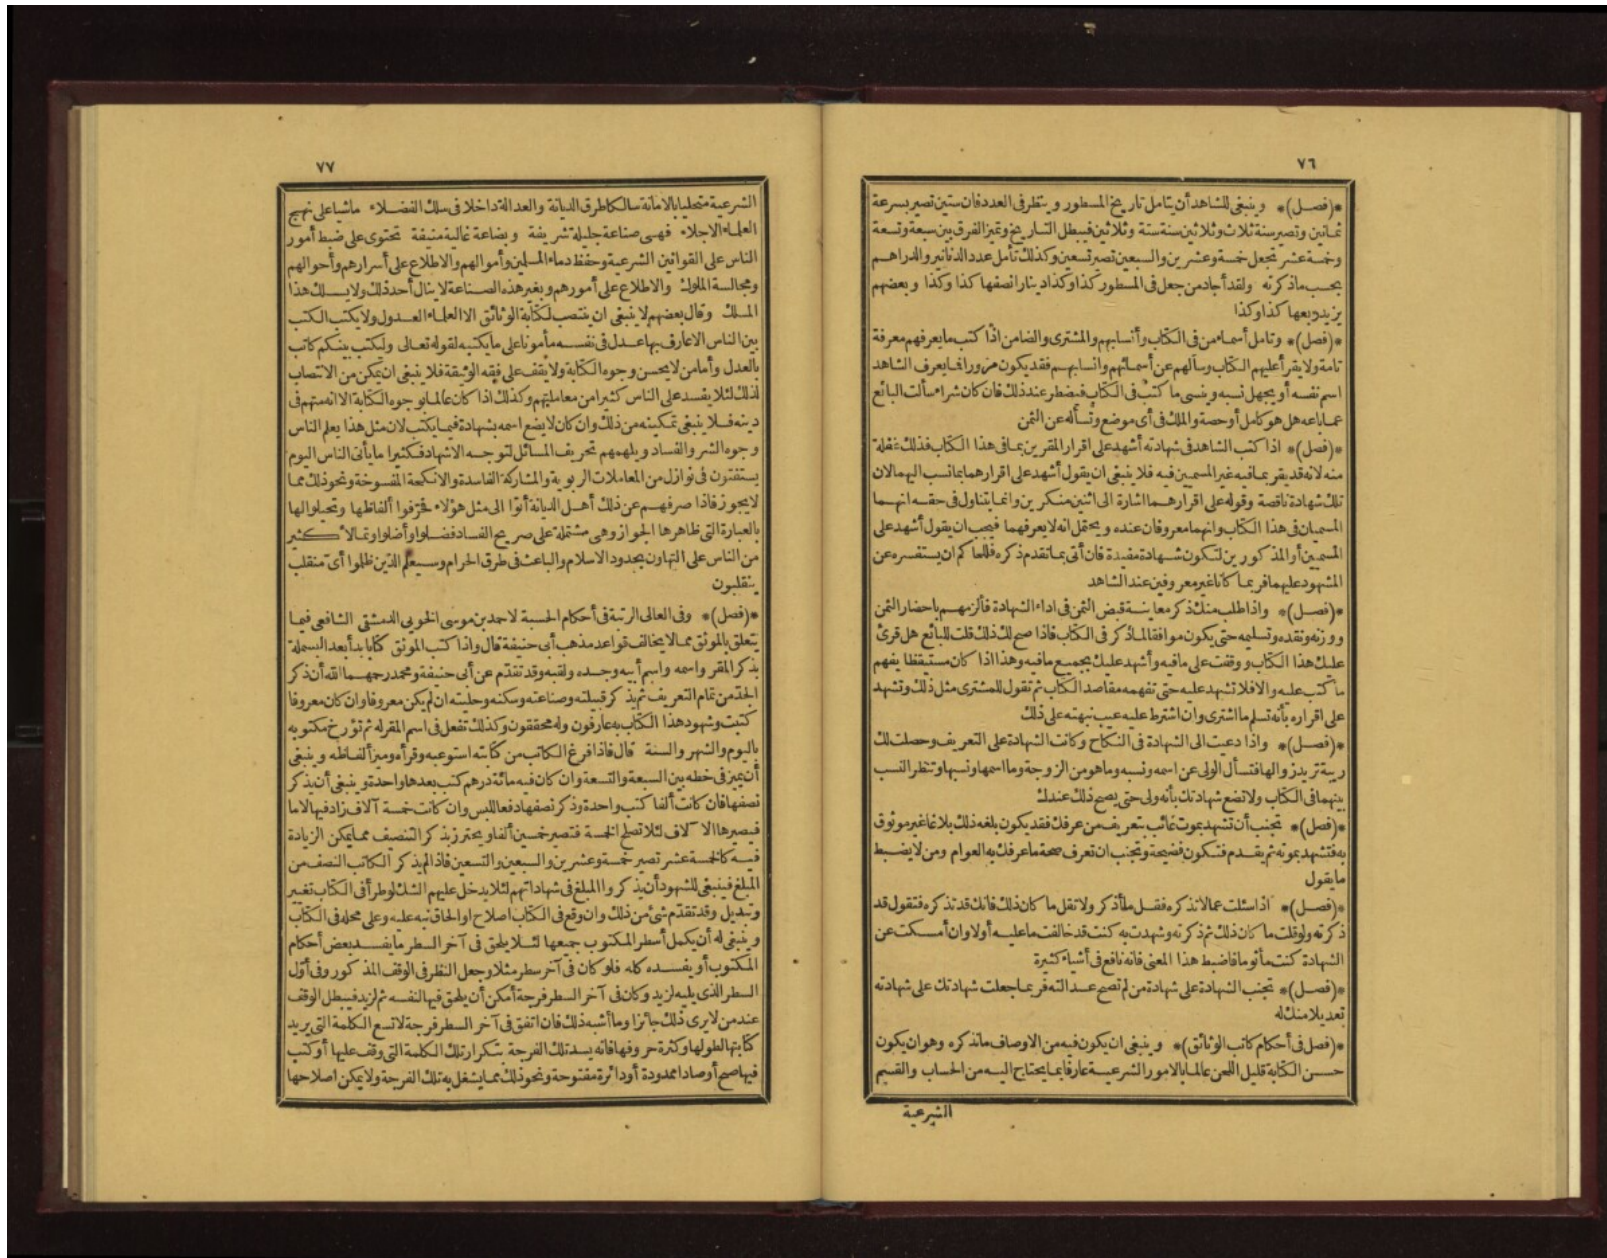 ٧٦
*(فصل)* وينبغى للشاهد أن يتأمل تاريخ المسطور وينظر فى العدد فان ستين تصير بسرعة
ثمانين وتصير سنة ثلاث وثلاثين سنة ستة وثلاثين فيبطل التاريخ وتميز الفرق بين سبعة وتسعة
وخمسة عشر تجعل خمسة وعشرين والسبعين تصير تسعين وكذلك تأمل عدد الدنانير والدراهم
بحسب ماذكرته ولقد أجاد من جعل فى المسطور كذا وكذا دينارا نصفها كذا وكذا وبعضهم
يزيد ربعها كذا وكذا
*(فصل)* وتأمل أسماء من فى الكتاب وأنسابهم والمشترى والضامن اذا كتب ما يعرفهم معرفة
تامة ولا يقرأ عليهم الكتاب وسألهم عن أسمائهم وانسابهم فقد يكون مزورا فما يعرف الشاهد
اسم نفسه أو يجهل نسبه وينسى ما كتب فى الكتاب فيضطر عند ذلك فان كان شراء سألت البائع
عما باعه هل هو كامل أو حصة والملك فى أى موضع وتسأله عن الثمن
*(فصل)* اذا كتب الشاهد فى شهادته أشهد على اقرار المقرين بما فى هذا الكتاب فذلك غفلة
منه لانه قد يقر بما فيه غير المسميين فيه فلا ينبغى ان يقول أشهد على اقرارهما بما نسب اليهما لان
تلك شهادة ناقصة وقوله على اقرارهما اشارة الى اثنين منكرين وانما يتناول فى حقه انهما
المسميان فى هذا الكتاب وانهما معروفان عنده ويحتمل انه لا يعرفهما فيجب ان يقول أشهد على
المسميين أو المذكورين لتكون شهادة مفيدة فان أتى بما تقدم ذكره فللحاكم ان يستفسره عن
المشهود عليهما فربما كانا غير معروفين عند الشاهد
*(فصل)* واذا طلب منك ذكر معاينة قبض الثمن فى اداء الشهادة فألزمهم باحضار الثمن
ووزنه ونقده وتسليمه حتى يكون موافقا لما ذكر فى الكتاب فاذا صح لك ذلك قلت للبائع هل قرئ
عليك هذا الكتاب ووقفت على ما فيه وأشهد عليك بجميع ما فيه وهذا اذا كان مستيقظا يفهم
ما كتب عليه والا فلا تشهد عليه حتى تفهمه مقاصد الكتاب ثم تقول للمشترى مثل ذلك وتشهد
على اقراره بأنه تسلم ما اشترى وان اشترط عليه عيب نبهته على ذلك
*(فصل)* واذا دعيت الى الشهادة فى النكاح وكانت الشهادة على التعريف وحصلت لك
ريبة تريد زوالها فتسأل الولى عن اسمه ونسبه وما هو من الزوجة وما اسمها ونسبها وتنظر النسب
بينهما فى الكتاب ولا تضع شهادتك بأنه ولى حتى يصح ذلك عندك
*(فصل)* تجنب أن تشهد بموت غائب بتعريف من عرفك فقد يكون بلغه ذلك بلاغا غير موثوق
به فتشهد بموته ثم يقدم فتكون فضيحة وتجنب ان تعرف صحة ما عرفك به العوام ومن لا يضبط
ما يقول
*(فصل)* اذا سئلت عما لا تذكره فقل ما أذكر ولا تقل ما كان ذلك فانك قد تذكره فتقول قد
ذكرته ولو قلت ما كان ذلك ثم ذكرته وشهدت به كنت قد خالفت ما عليه أولا وان أمسكت عن
الشهادة كنت مأثوما فاضبط هذا المعنى فانه نافع فى أشياء كثيرة
*(فصل)* تجنب الشهادة على شهادة من لم تصح عدالته فربما جعلت شهادتك على شهادته
تعديلا منك له
*(فصل فى أحكام كاتب الوثائق)* وينبغى ان يكون فيه من الاوصاف ما نذكره وهو ان يكون
حسن الكتابة قليل اللحن عالما بالامور الشرعية عارفا بما يحتاج اليه من الحساب والقسم
الشرعية
٧٧
الشرعية متحليا بالامانة سالكا طرق الديانة والعدالة داخلا فى سلك الفضلاء ماشيا على نهج
العلماء الاجلاء فهى صناعة جليلة شريفة وبضاعة غالية منيفة تحتوى على ضبط أمور
الناس على القوانين الشرعية وحفظ دماء المسلمين وأموالهم والاطلاع على أسرارهم وأحوالهم
ومجالسة الملوك والاطلاع على أمورهم وبغير هذه الصناعة لا ينال أحد ذلك ولا يسلك هذا
المسلك وقال بعضهم لا ينبغى ان ينتصب لكتابة الوثائق الا العلماء العدول ولا يكتب الكتب
بين الناس الا عارف بها عدل فى نفسه مأمونا على ما يكتبه لقوله تعالى وليكتب بينكم كاتب
بالعدل وأما من لا يحسن وجوه الكتابة ولا يقف على فقه الوثيقة فلا ينبغى ان يمكن من الانتصاب
لذلك لئلا يفسد على الناس كثيرا من معاملتهم وكذلك اذا كان عالما بوجوه الكتابة الا انه متهم فى
دينه فلا ينبغى تمكينه من ذلك وان كان لا يضع اسمه بشهادة فيما يكتب لان مثل هذا يعلم الناس
وجوه الشر والفساد ويلهمهم تحريف المسائل لتوجه الاشهاد فكثيرا ما يأتى الناس اليوم
يستفتون فى نوازل من المعاملات الربوية والمشاركة الفاسدة والانكحة المفسوخة ونحو ذلك مما
لا يجوز فاذا صرفهم عن ذلك أهل الديانة أتوا الى مثل هؤلاء فحرفوا ألفاظها وتحيلوا لها
بالعبارة التى ظاهرها الجواز وهى مشتملة على صريح الفساد فضلوا وأضلوا وتمالأ كثير
من الناس على التهاون بحدود الاسلام والباعث فى طرق الحرام وسيعلم الذين ظلموا أى منقلب
ينقلبون
*(فصل)* وفى العالى الرتبة فى أحكام الحسبة لاحمد بن موسى الخوبى الدمشقى الشافعى فيما
يتعلق بالموثق مما لا يخالف قواعد مذهب أبى حنيفة قال واذا كتب الموثق كتابا بدأ بعد البسملة
بذكر المقر واسمه واسم أبيه وجده ولقبه وقد تقدم عن أبى حنيفة ومحمد رحمهما الله أن ذكر
الجد من تمام التعريف ثم يذكر قبيلته وصناعته وسكنه وحليته ان لم يكن معروفا وان كان معروفا
كتبت وشهود هذا الكتاب به عارفون وله محققون وكذلك تفعل فى اسم المقر له ثم تؤرخ مكتوبه
باليوم والشهر والسنة قال فاذا فرغ الكاتب من كتابته استوعبه وقرأه وميز ألفاظه وينبغى
أن يميز فى خطه بين السبعة والتسعة وان كان فيه مائة درهم كتب بعدها واحدة وينبغى أن يذكر
نصفها فان كانت ألفا كتب واحدة وذكر نصفها دفعا للبس وان كانت خمسة آلاف زاد فيها لاما
فيصيرها الا آلاف لئلا تصلح الخمسة فتصير خمسين ألفا ويحترز بذكر التنصيف مما يمكن الزيادة
فيه كالخمسة عشر تصير خمسة وعشرين والسبعين والتسعين فاذا لم يذكر الكاتب النصف من
المبلغ فينبغى للشهود أن يذكروا المبلغ فى شهاداتهم لئلا يدخل عليهم الشك لو طرأ فى الكتاب تغيير
وتبديل وقد تقدم شئ من ذلك وان وقع فى الكتاب اصلاح او الحاق نبه عليه وعلى محله فى الكتاب
وينبغى له أن يكمل أسطر المكتوب جميعها لئلا يلحق فى آخر السطر ما يفسد بعض أحكام
المكتوب أو يفسده كله فلو كان فى آخر سطر مثلا وجعل النظر فى الوقف المذكور وفى أول
السطر الذى يليه لزيد وكان فى آخر السطر فرجة أمكن أن يلحق فيها لنفسه ثم لزيد فيبطل الوقف
عند من لا يرى ذلك جائزا وما أشبه ذلك فان اتفق فى آخر السطر فرجة لا تسع الكلمة التى يريد
كتابتها لطولها وكثرة حروفها فانه يسد تلك الفرجة بتكرار تلك الكلمة التى وقف عليها أو كتب
فيها صح أو صادا ممدودة أو دائرة مفتوحة ونحو ذلك مما يشغل به تلك الفرجة ولا يمكن اصلاحها